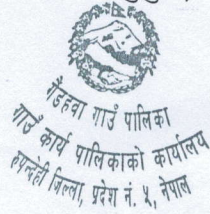 गैडहवा गाउँ पालिका
गाउँ कार्य पालिकाको कार्यालय
रुपन्देही जिल्ला, प्रदेश नं. ५, नेपाल